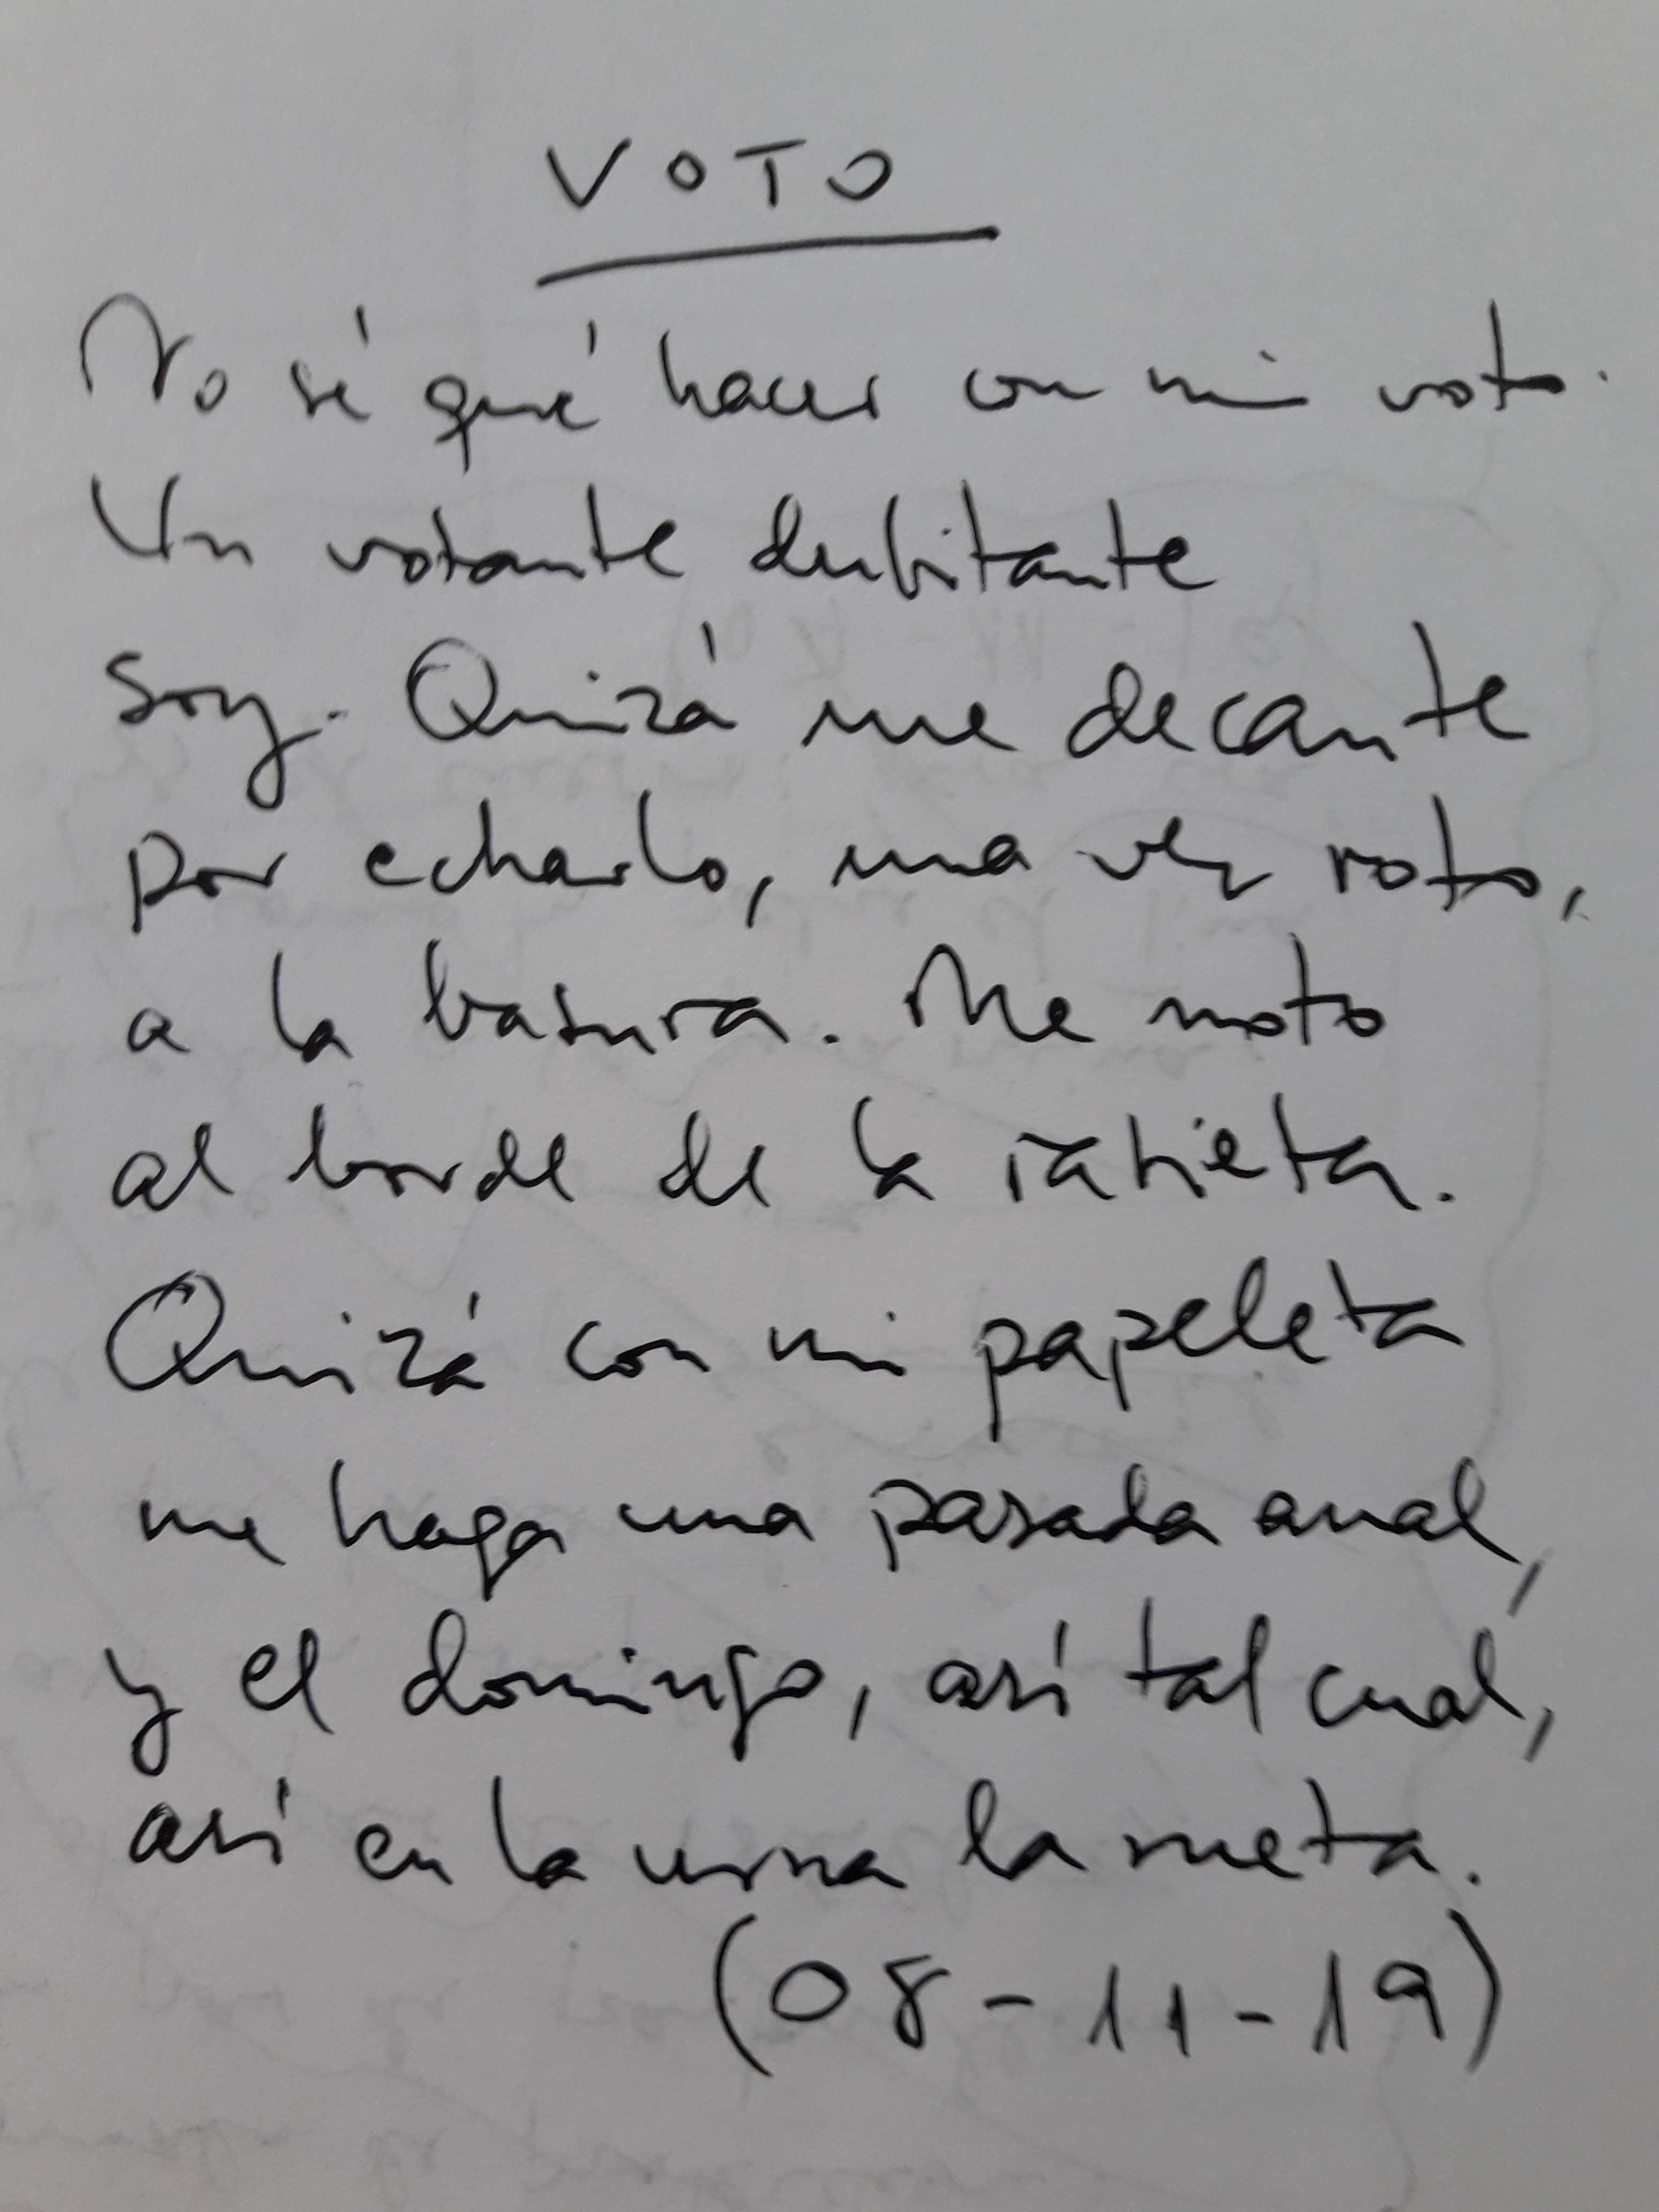 VOTO
No sé qué hacer con mi voto.
Un votante dubitante
soy. Quizá me decante
por echarlo, una vez roto,
a la basura. Me noto
al borde de la rabieta.
Quizá con mi papeleta
me haga una pasada anal,
y el domingo, así tal cual,
así en la urna la meta.
(08-11-19)